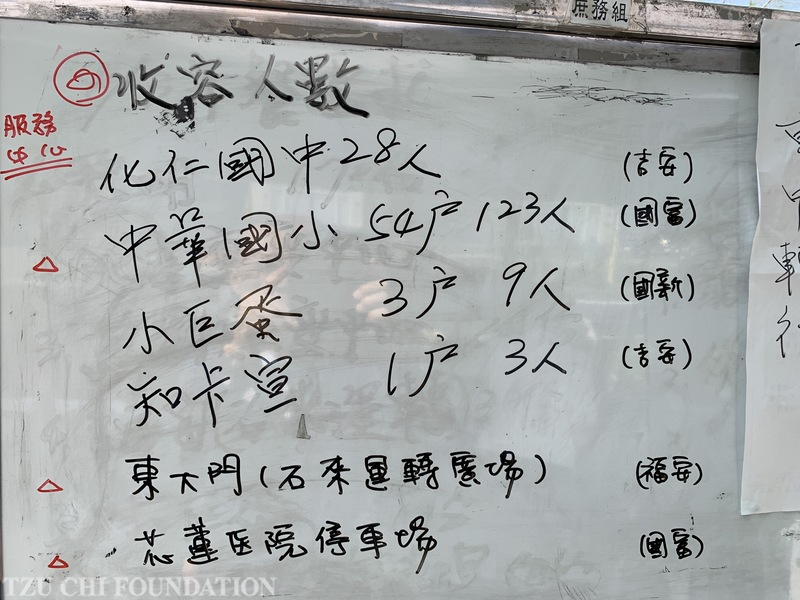 庶務組
收容人數
服務
中心
化仁國中 28人 (吉安)
中華國小 54户 123人 (國富)
小巨蛋 3户 9人 (國新)
知卡宣 1户 3人 (吉安)
東大門(石來運轉廣場) (福安)
芯蓮医院停車場 (國富)
TZU CHI FOUNDATION